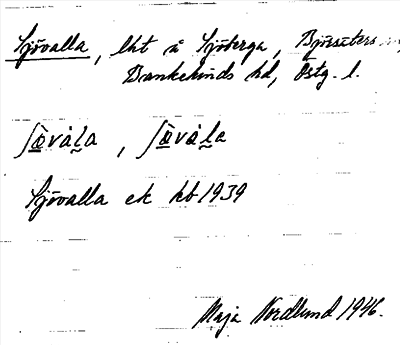 Sjövalla, lht å Sjöberga, Björsäters sn,
Bankekinds hd, Östg. l.
ʃö̀vàl̬a, ʃö̀vàl̬a
Sjövalla ek kb 1939
Maja Nordlund 1946.